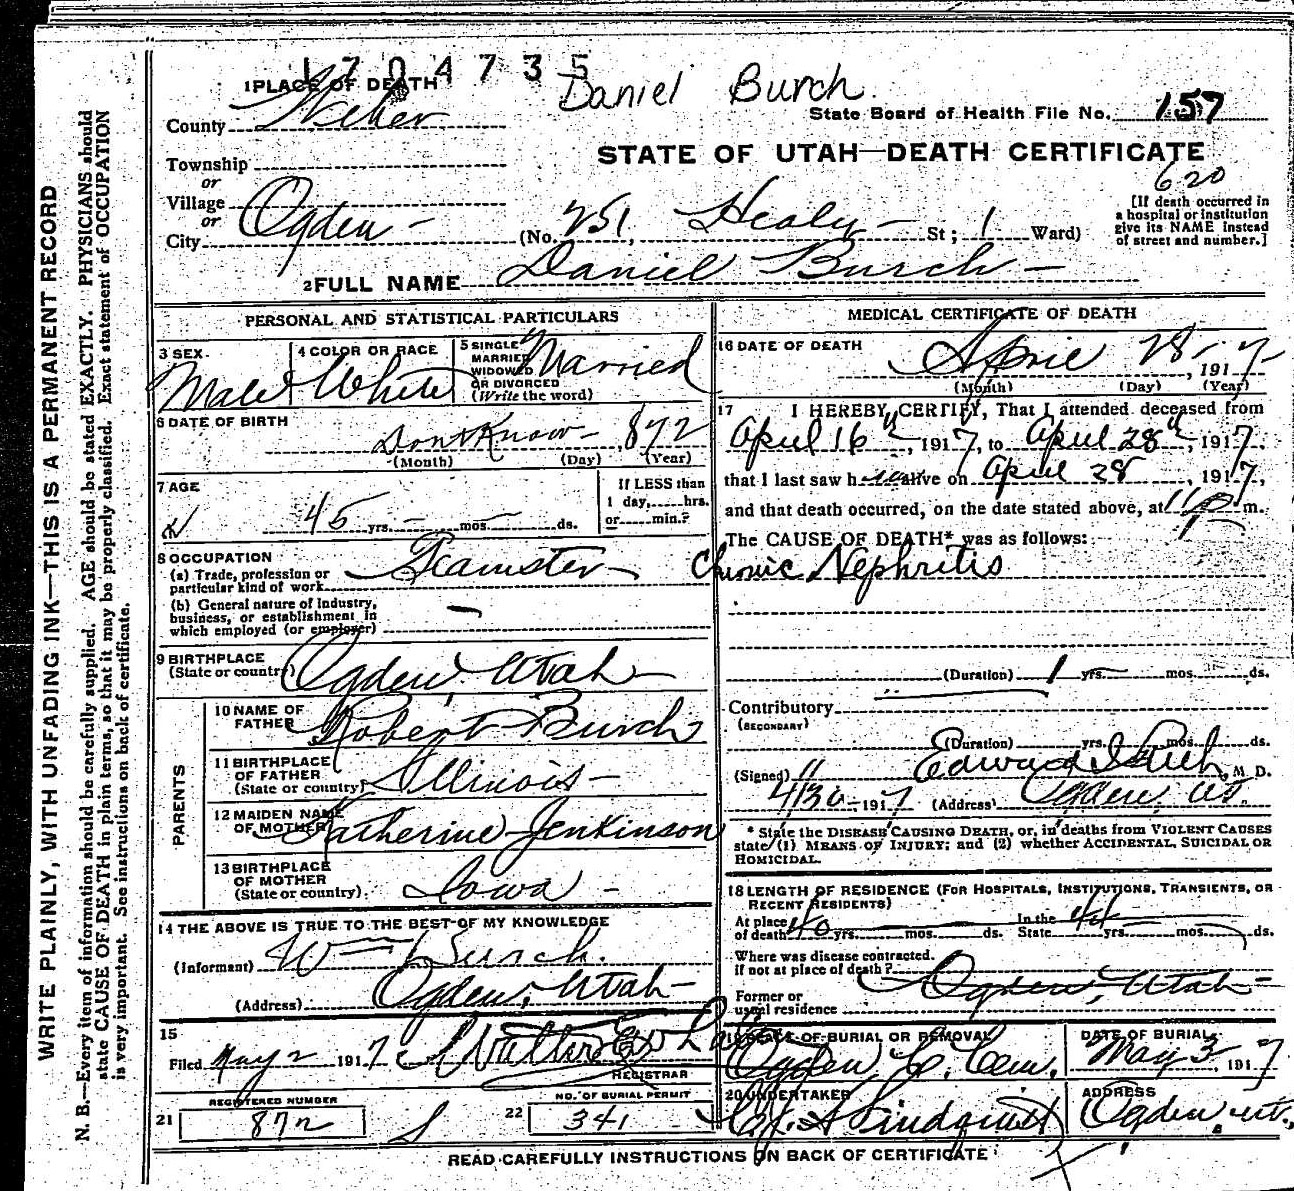 1704735
Daniel Burch.
1 PLACE OF DEATH
State Board of Health File No. 157
County Weber
STATE OF UTAH—DEATH CERTIFICATE
620
Township
or
Village
or
City Ogden - (No. 251, Healy - St; 1 Ward)
[If death occurred in
a hospital or institution
give its NAME instead
of street and number.]
2 FULL NAME Daniel Burch -
PERSONAL AND STATISTICAL PARTICULARS
3 SEX. Male
4 COLOR OR RACE White
5 SINGLE
MARRIED
WIDOWED
OR DIVORCED
(Write the word)
Married
6 DATE OF BIRTH
Dont Know - 872
(Month) (Day) (Year)
7 AGE
45 yrs. - mos. - ds.
If LESS than
1 day, hrs.
or min.?
8 OCCUPATION
(a) Trade, profession or
particular kind of work Teamster -
(b) General nature of Industry,
business, or establishment in
which employed (or employer) -
9 BIRTHPLACE
(State or country) Ogden, Utah -
PARENTS
10 NAME OF
FATHER Robert Burch
11 BIRTHPLACE
OF FATHER
(State or country) Illinois -
12 MAIDEN NAME
OF MOTHER Katherine Jenkinson
13 BIRTHPLACE
OF MOTHER
(State or country) Iowa -
14 THE ABOVE IS TRUE TO THE BEST OF MY KNOWLEDGE
(Informant) Wm Burch.
(Address) Ogden, Utah -
15
Filed May 2 1917
REGISTRAR
REGISTERED NUMBER
21 872
NO. OF BURIAL PERMIT
22 341
MEDICAL CERTIFICATE OF DEATH
16 DATE OF DEATH
April 28 -, 1917
(Month) (Day) (Year)
17 I HEREBY CERTIFY, That I attended deceased from
April 16th, 1917, to April 28th, 1917,
that I last saw h alive on April 28, 1917,
and that death occurred, on the date stated above, at 11 P m.
The CAUSE OF DEATH* was as follows:
Chronic Nephritis
(Duration) 1 yrs. - mos. ds.
Contributory
(SECONDARY)
(Duration) yrs. mos. ds.
(Signed) Edward I. Rich, M. D.
4/30 - 1917 (Address) Ogden, Ut.
* State the DISEASE CAUSING DEATH, or, in deaths from VIOLENT CAUSES
state (1) MEANS OF INJURY; and (2) whether ACCIDENTAL, SUICIDAL OR
HOMICIDAL.
18 LENGTH OF RESIDENCE (FOR HOSPITALS, INSTITUTIONS, TRANSIENTS, OR
RECENT RESIDENTS)
At place
of death 40 yrs. mos. ds.
In the
State 44 yrs. mos. ds.
Where was disease contracted.
if not at place of death?
Former or
usual residence Ogden, Utah -
19 PLACE OF BURIAL OR REMOVAL
Ogden C. Cem.
DATE OF BURIAL
May 3, 1917
20 UNDERTAKER
Lindquist
ADDRESS
Ogden ut.
READ CAREFULLY INSTRUCTIONS ON BACK OF CERTIFICATE
WRITE PLAINLY, WITH UNFADING INK—THIS IS A PERMANENT RECORD
N. B.—Every item of information should be carefully supplied. AGE should be stated EXACTLY. PHYSICIANS should
state CAUSE OF DEATH in plain terms, so that it may be properly classified. Exact statement of OCCUPATION
is very important. See instructions on back of certificate.